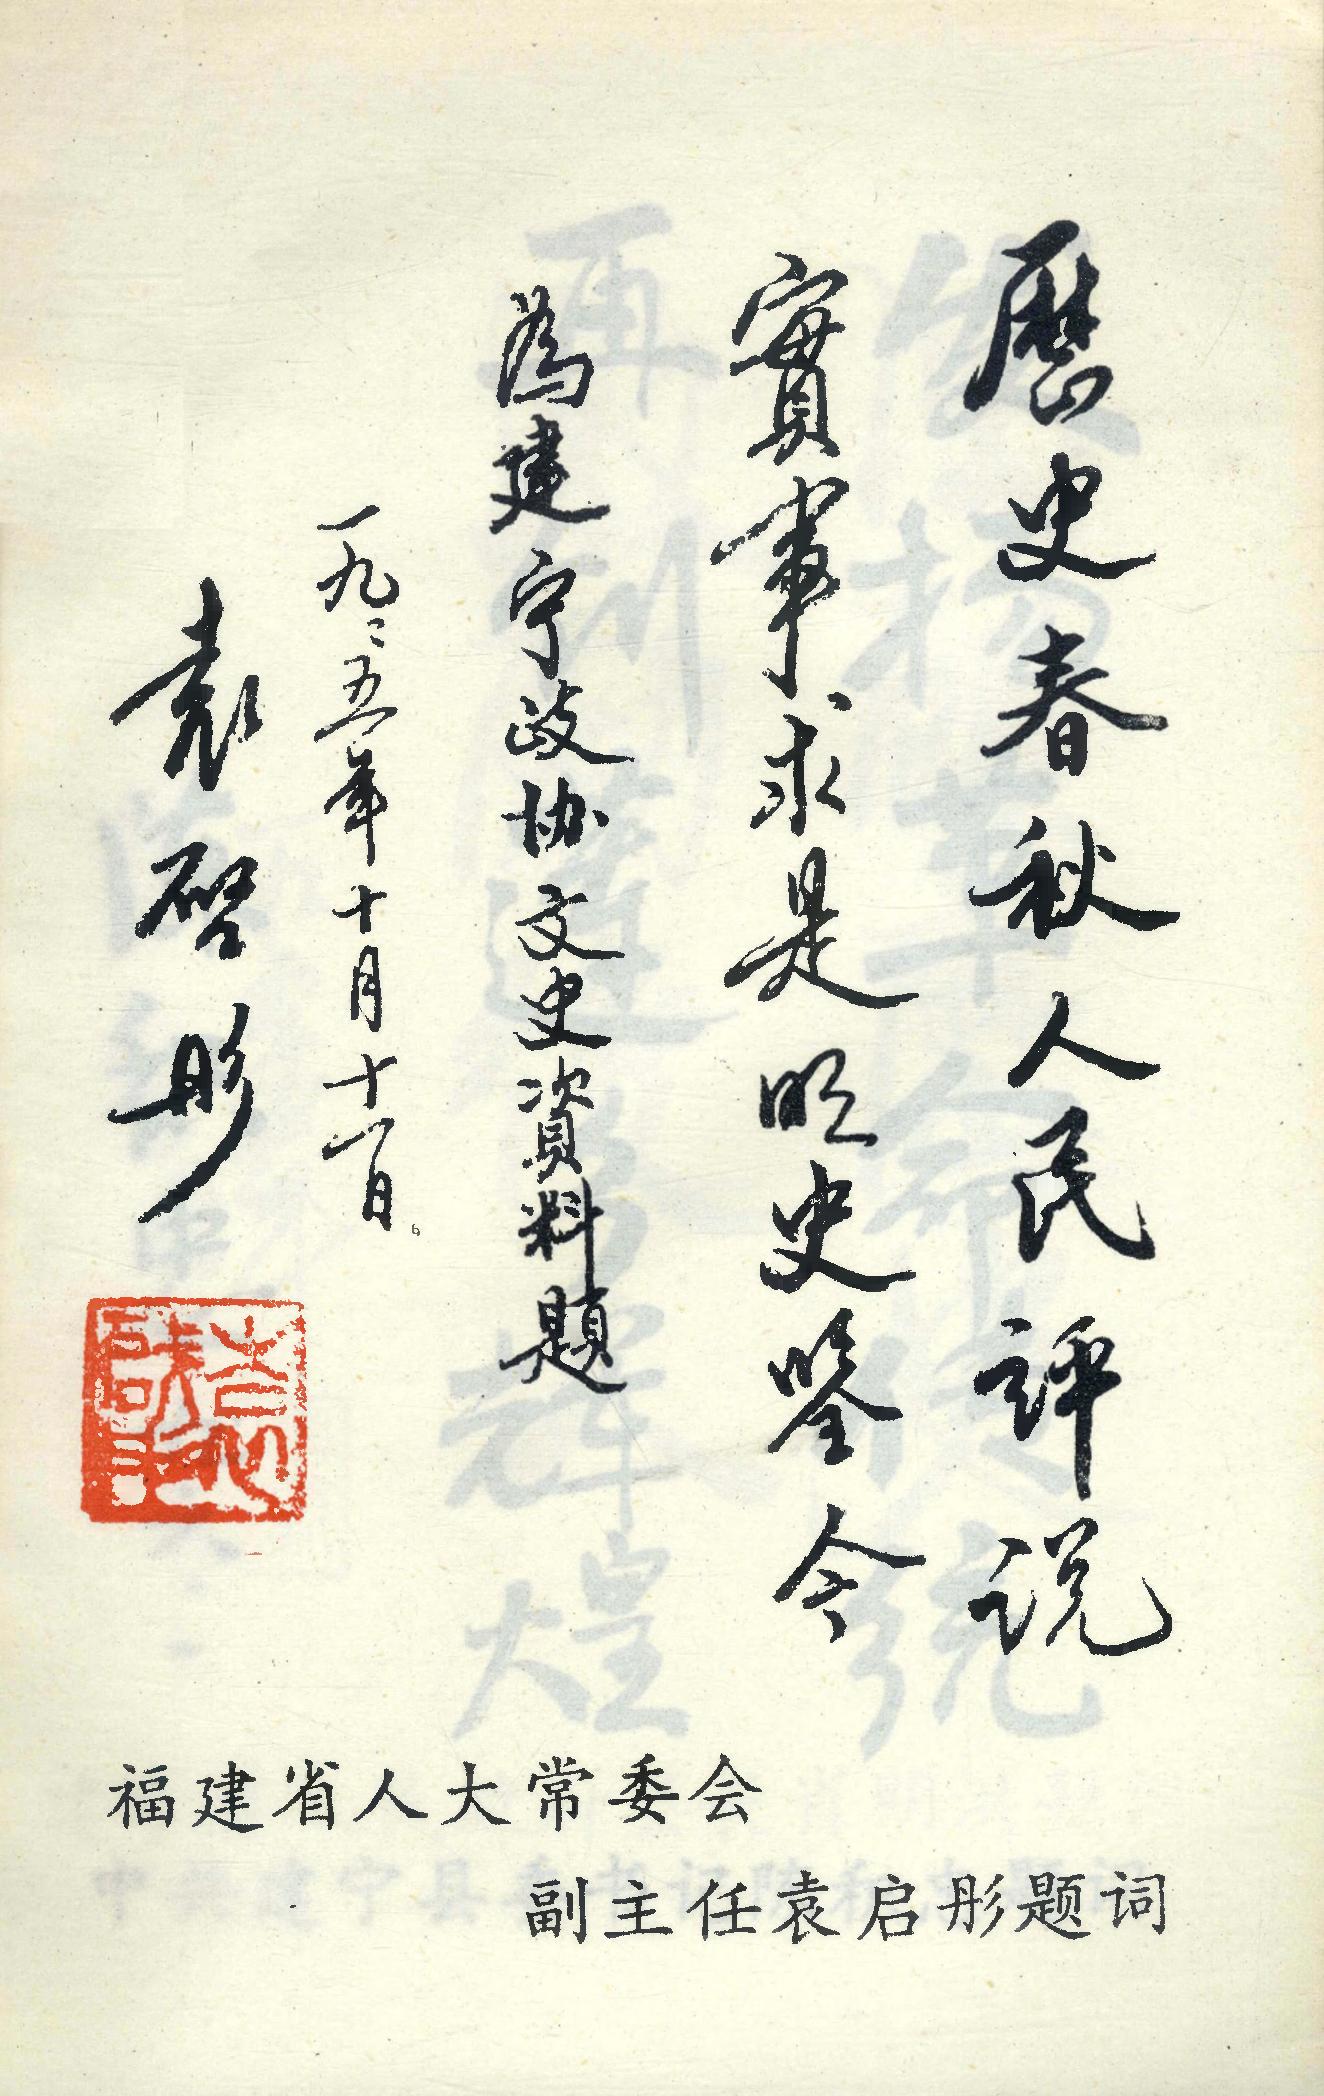 歷史春秋人民評说
實事求是明史鑒今
為建宁政协文史資料題
一九九五年十月十一日
袁啓彤
福建省人大常委会
副主任袁启彤题词